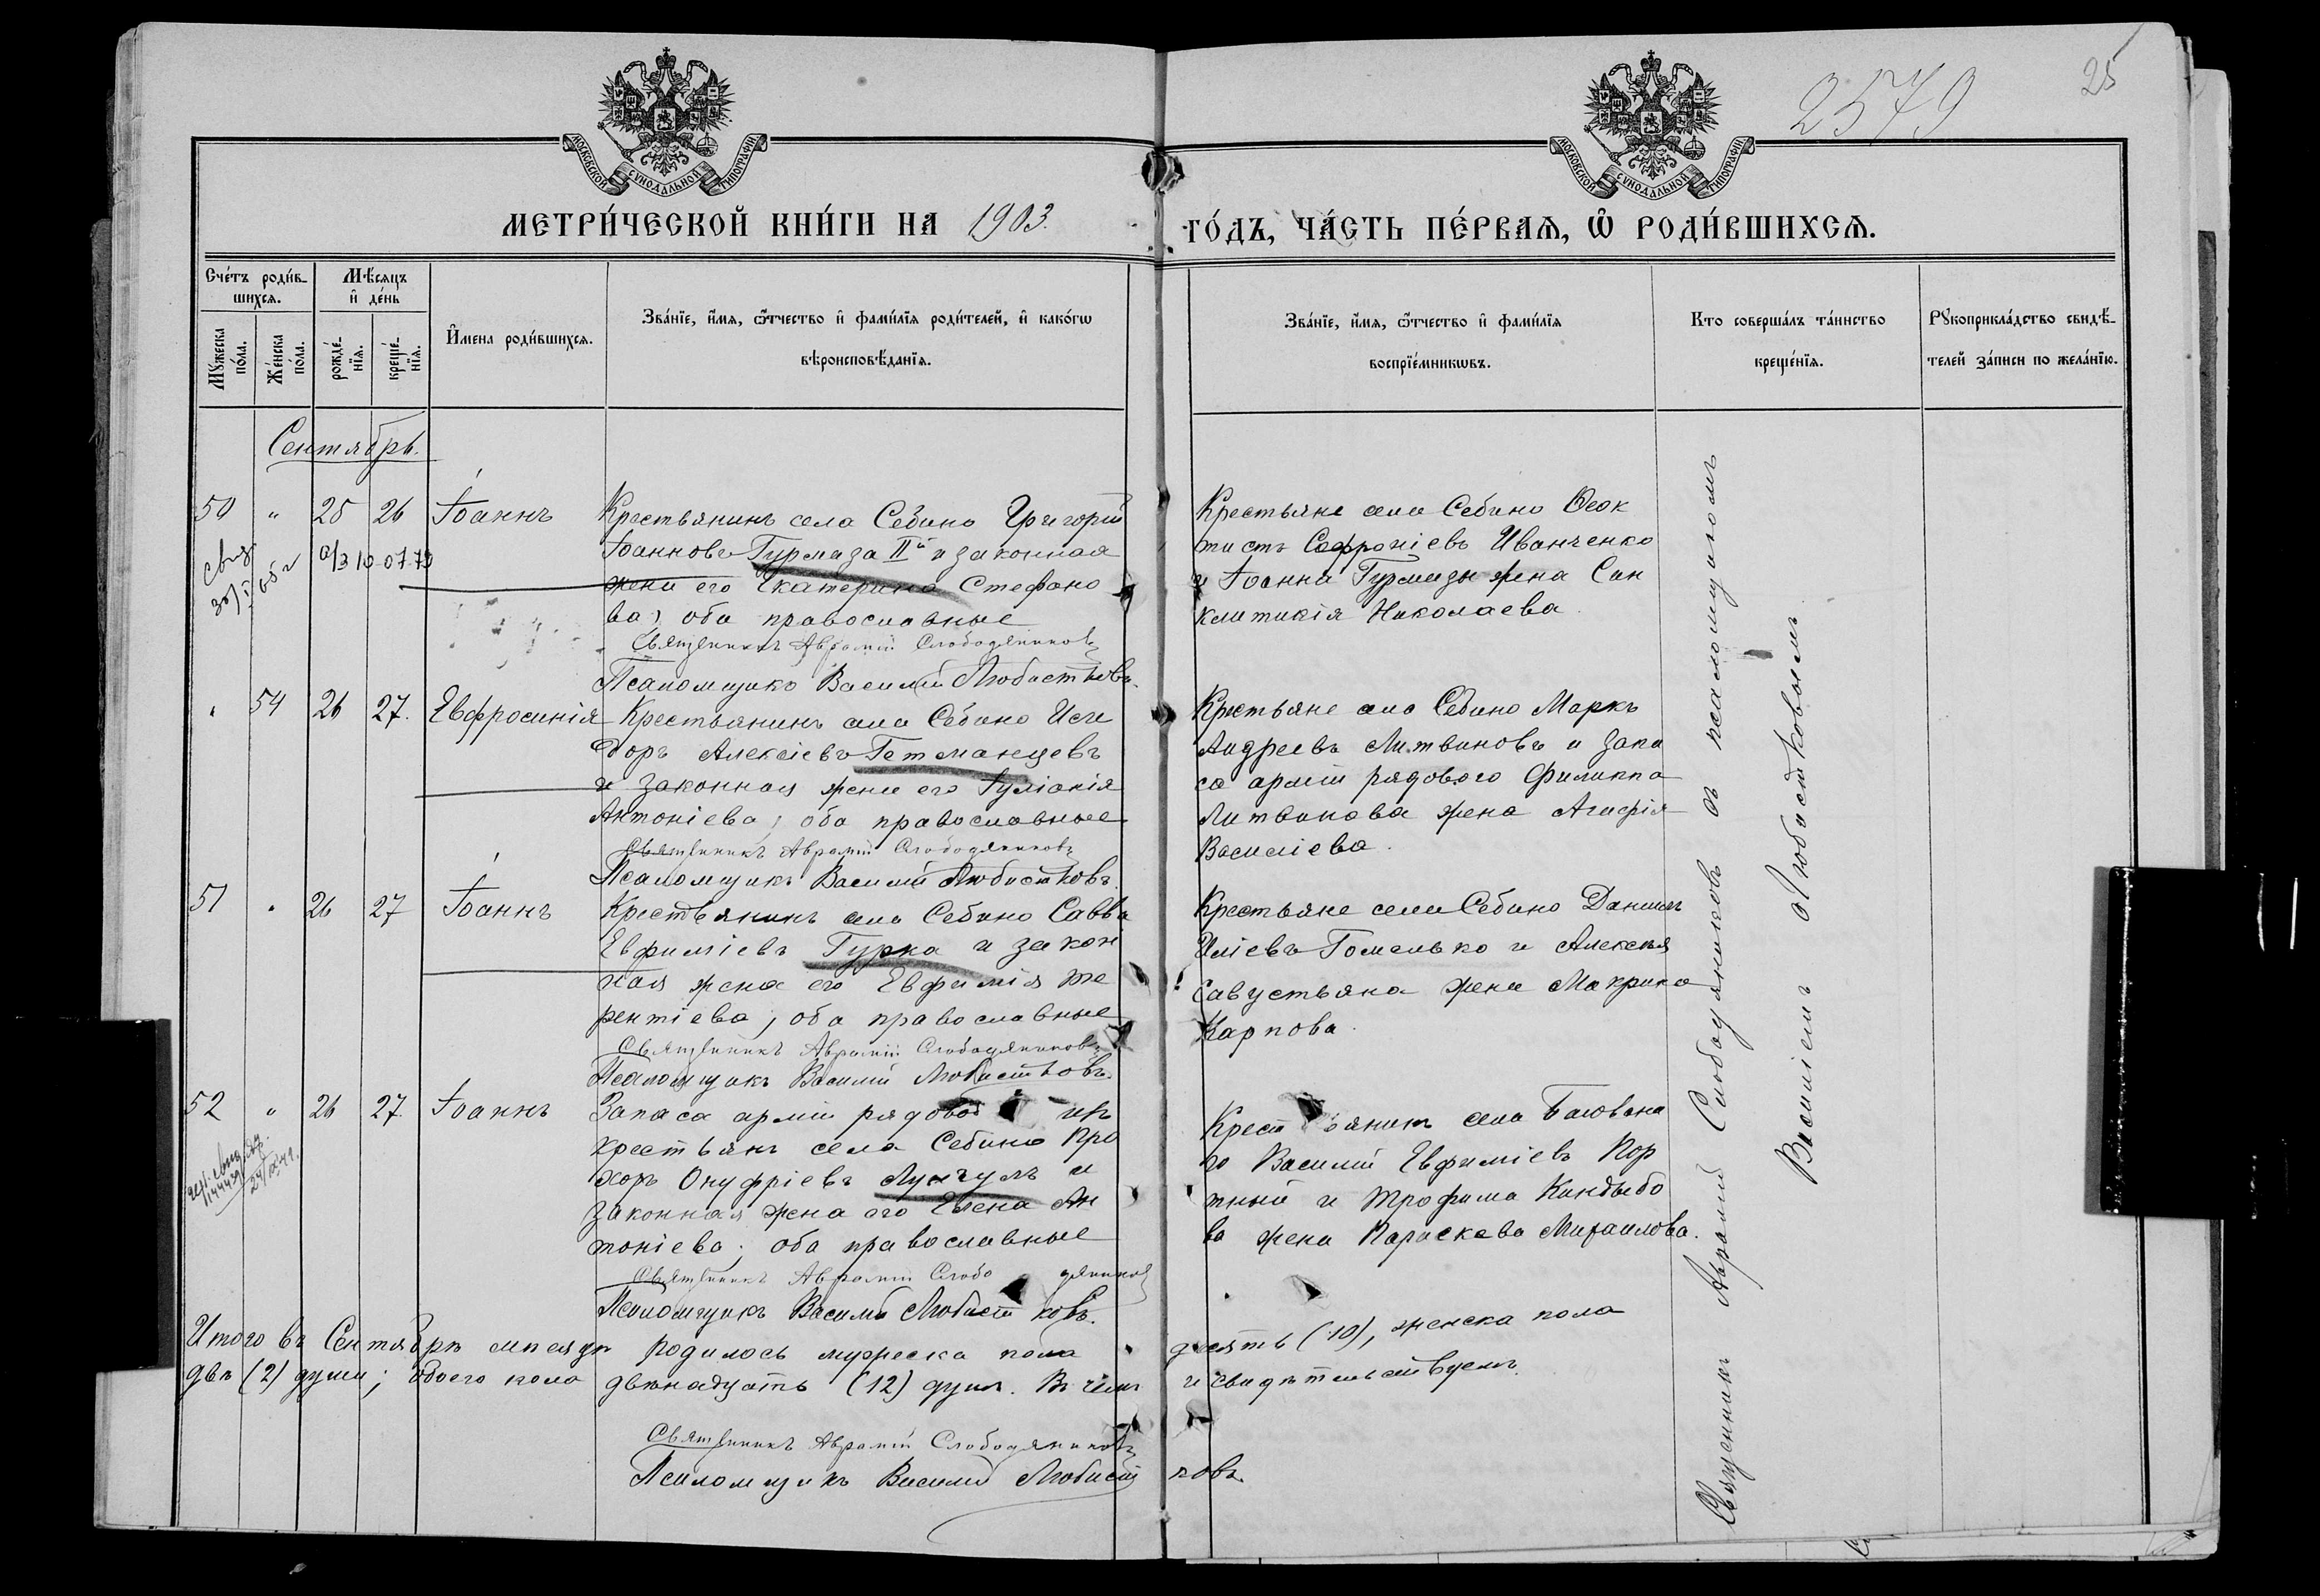 2579
25
МОСКОВСКОЙ СѴНОДАЛЬНОЙ ТИПОГРАФІИ
МОСКОВСКОЙ СѴНОДАЛЬНОЙ ТИПОГРАФІИ
МЕТРИ́ЧЕСКОЙ КНИ́ГИ НА 1903. ГО́ДЪ, ЧА́СТЬ ПЕ́РВАѦ, Ѡ҆ РОДИ́ВШИХСѦ.
Сче́тъ роди́в-
шихсѧ.
Мꙋ́жеска по́ла.
Же́нска по́ла.
Мѣ́сѧцъ
и҆ де́нь
рожде́-
нїѧ.
креще́-
нїѧ.
И҆мена роди́вшихсѧ.
Зва́нїе, и҆́мѧ, ѻ҆́тчество и҆ фами́лїѧ роди́телей, и҆ како́гѡ
вѣроисповѣ́данїѧ.
Зва́нїе, и҆́мѧ, ѻ҆́тчество и҆ фами́лїѧ
воспрїе́мникѡвъ.
Кто соверша́лъ та́инство
креще́нїѧ.
Рꙋкоприкла́дство свидѣ́-
телей за́писи по жела́нїю.
Сентябрь.
50 " 25 26 Іоаннъ
Крестьянинъ села Себино Григорій
Іоанновъ Гурмаза IIй и законная
жена его Екатерина Стефано
ва; оба православные
Священникъ Аврамій Слободяниковъ
Псаломщикъ Василій Любистковъ.
Крестьяне села Себино Ѳеок
тистъ Софроніевъ Иванченко
и Іоанна Гурмазы жена Син
клитикія Николаева.
" 54 26 27. Евфросинія
Крестьянинъ села Себино Иси
доръ Алексіевъ Гетманцевъ
и законная жена его Іуліанія
Антоніева; оба православные
Священникъ Аврамій Слободяниковъ
Псаломщикъ Василій Любистковъ.
Крестьяне села Себино Маркъ
Андреевъ Литвиновъ и запа
са арміи рядового Филиппа
Литвинова жена Агафія
Василіева.
51 " 26 27 Іоаннъ
Крестьянинъ села Себино Савва
Евфиміевъ Гурка и закон
ная жена его Евфимія Те
рентіева; оба православные
Священникъ Аврамій Слободяниковъ
Псаломщикъ Василій Любистковъ.
Крестьяне села Себино Даниилъ
Иліевъ Гомелько и Алексія
Савустьяна жена Макрина
Карпова.
52 " 26 27. Іоаннъ
Запаса арміи рядовой изъ
крестьянъ села Себино Про
хоръ Онуфріевъ Лунгулъ и
законная жена его Елена Ан
тоніева; оба православные
Священникъ Аврамій Слободяниковъ
Псаломщикъ Василій Любистковъ.
Крестьянинъ села Баловна
го Василій Евфиміевъ Пор
тный и Трофима Киндыбо
ва жена Параскева Михаилова.
Священникъ Аврамій Слободяниковъ съ псаломщикомъ
Василіемъ Любистковымъ
Итого въ Сентябрѣ мѣсяцѣ родилось мужеска пола десять (10), женска пола
двѣ (2) души; обоего пола двѣнадцать (12) душъ. Въ чемъ и свидѣтельствуемъ.
Священникъ Аврамій Слободяниковъ
Псаломщикъ Василій Любистковъ.